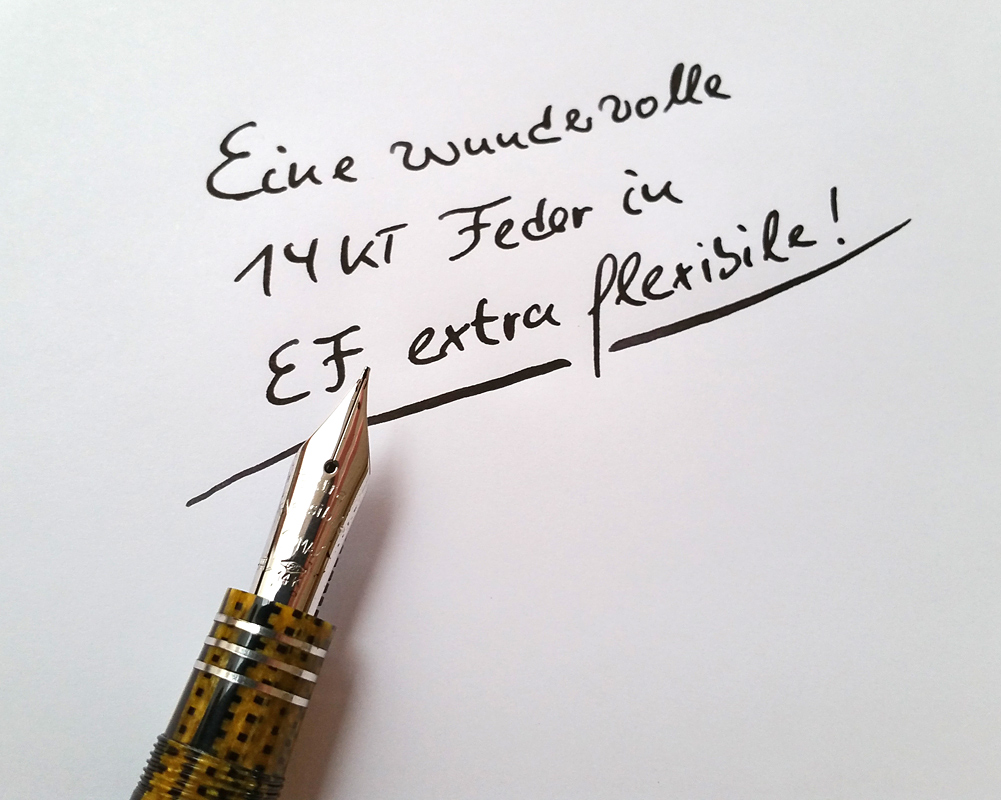 Eine wundervolle
14KT Feder in
EF extra flexibile!